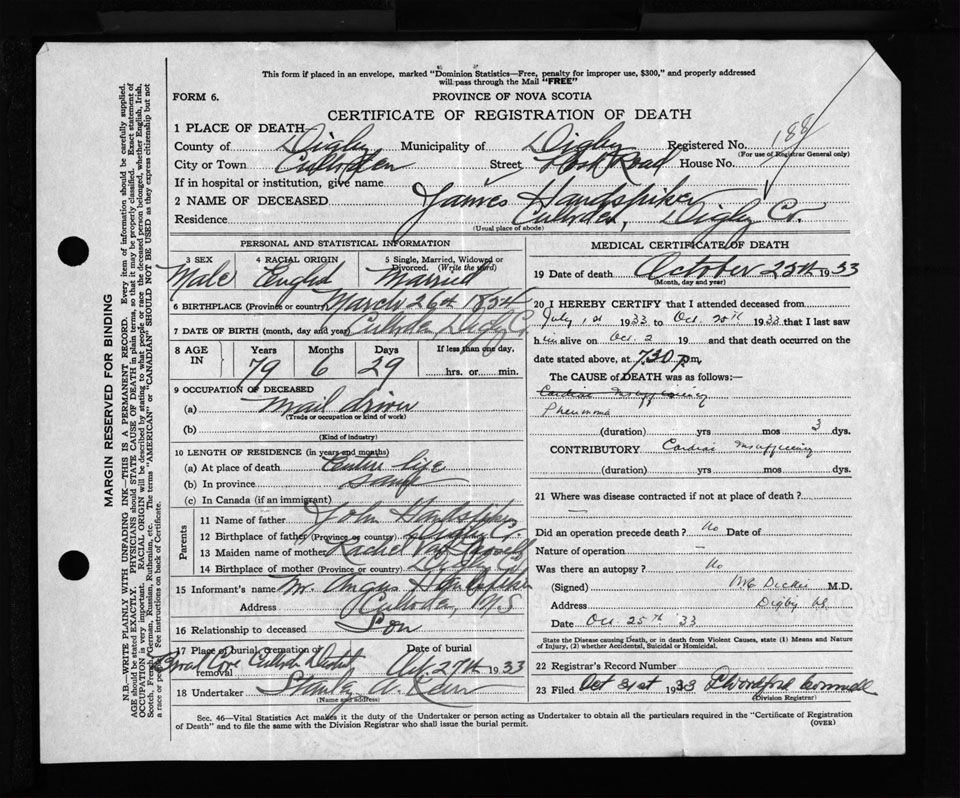 This form if placed in an envelope, marked "Dominion Statistics—Free, penalty for improper use, $300," and properly addressed
will pass through the Mail "FREE"
FORM 6.
PROVINCE OF NOVA SCOTIA
CERTIFICATE OF REGISTRATION OF DEATH
188
1 PLACE OF DEATH
County of Digby Municipality of Digby Registered No.
(For use of Registrar General only)
City or Town Culloden Street Post Road House No.
If in hospital or institution, give name
2 NAME OF DECEASED James Handspiker
Residence Culloden, Digby Co.
(Usual place of abode)
PERSONAL AND STATISTICAL INFORMATION
3 SEX 4 RACIAL ORIGIN 5 Single, Married, Widowed or Divorced. (Write the word)
Male England Married
6 BIRTHPLACE (Province or country) March 26th 1854
7 DATE OF BIRTH (month, day and year) Culloden, Digby Co.
8 AGE IN Years Months Days If less than one day,
79 6 29 hrs. or min.
9 OCCUPATION OF DECEASED
(a) Mail driver
(Trade or occupation or kind of work)
(b)
(Kind of industry)
10 LENGTH OF RESIDENCE (in years and months)
(a) At place of death Entire life
(b) In province same
(c) In Canada (if an immigrant)
Parents
11 Name of father John Handspiker
12 Birthplace of father (Province or country) Digby Co.
13 Maiden name of mother Rachel
14 Birthplace of mother (Province or country) Digby Co.
15 Informant's name Mr. Angus Handspiker
Address Culloden, N.S
16 Relationship to deceased Son
17 Place of burial, cremation or removal Date of burial
Culloden Oct 27th 1933
18 Undertaker Stanley A.
(Name and address)
MEDICAL CERTIFICATE OF DEATH
19 Date of death October 25th 1933
(Month, day and year)
20 I HEREBY CERTIFY that I attended deceased from
July 1933 to Oct. 1933 that I last saw
him alive on Oct. 2 19 and that death occurred on the
date stated above, at 7.30 p.m.
The CAUSE of DEATH was as follows:
Cardiac Insufficiency
Pneumonia
(duration) yrs mos 3 dys.
CONTRIBUTORY Cardiac Insufficiency
(duration) yrs mos dys.
21 Where was disease contracted if not at place of death?
—
Did an operation precede death? No Date of
Nature of operation —
Was there an autopsy? No
(Signed) Dickie M.D.
Address Digby NS
Date Oct. 25th '33
State the Disease causing Death, or in death from Violent Causes, state (1) Means and Nature
of Injury, (2) whether Accidental, Suicidal or Homicidal.
22 Registrar's Record Number
23 Filed Oct 31st 1933
(Division Registrar)
Sec. 46—Vital Statistics Act makes it the duty of the Undertaker or person acting as Undertaker to obtain all the particulars required in the "Certificate of Registration
of Death" and to file the same with the Division Registrar who shall issue the burial permit.
(OVER)
MARGIN RESERVED FOR BINDING
N.B.—WRITE PLAINLY WITH UNFADING INK—THIS IS A PERMANENT RECORD. Every item of information should be carefully supplied.
AGE should be stated EXACTLY. PHYSICIANS should STATE CAUSE OF DEATH in plain terms, so that it may be properly classified. Exact statement of
OCCUPATION is very important. RACIAL ORIGIN will be described by stating to what people or race the deceased person belonged, whether English, Irish,
Scotch, French, German, Russian, Ruthenian, etc. The terms "AMERICAN" or "CANADIAN" SHOULD NOT BE USED as they express citizenship but not
a race or people. See instructions on back of Certificate.